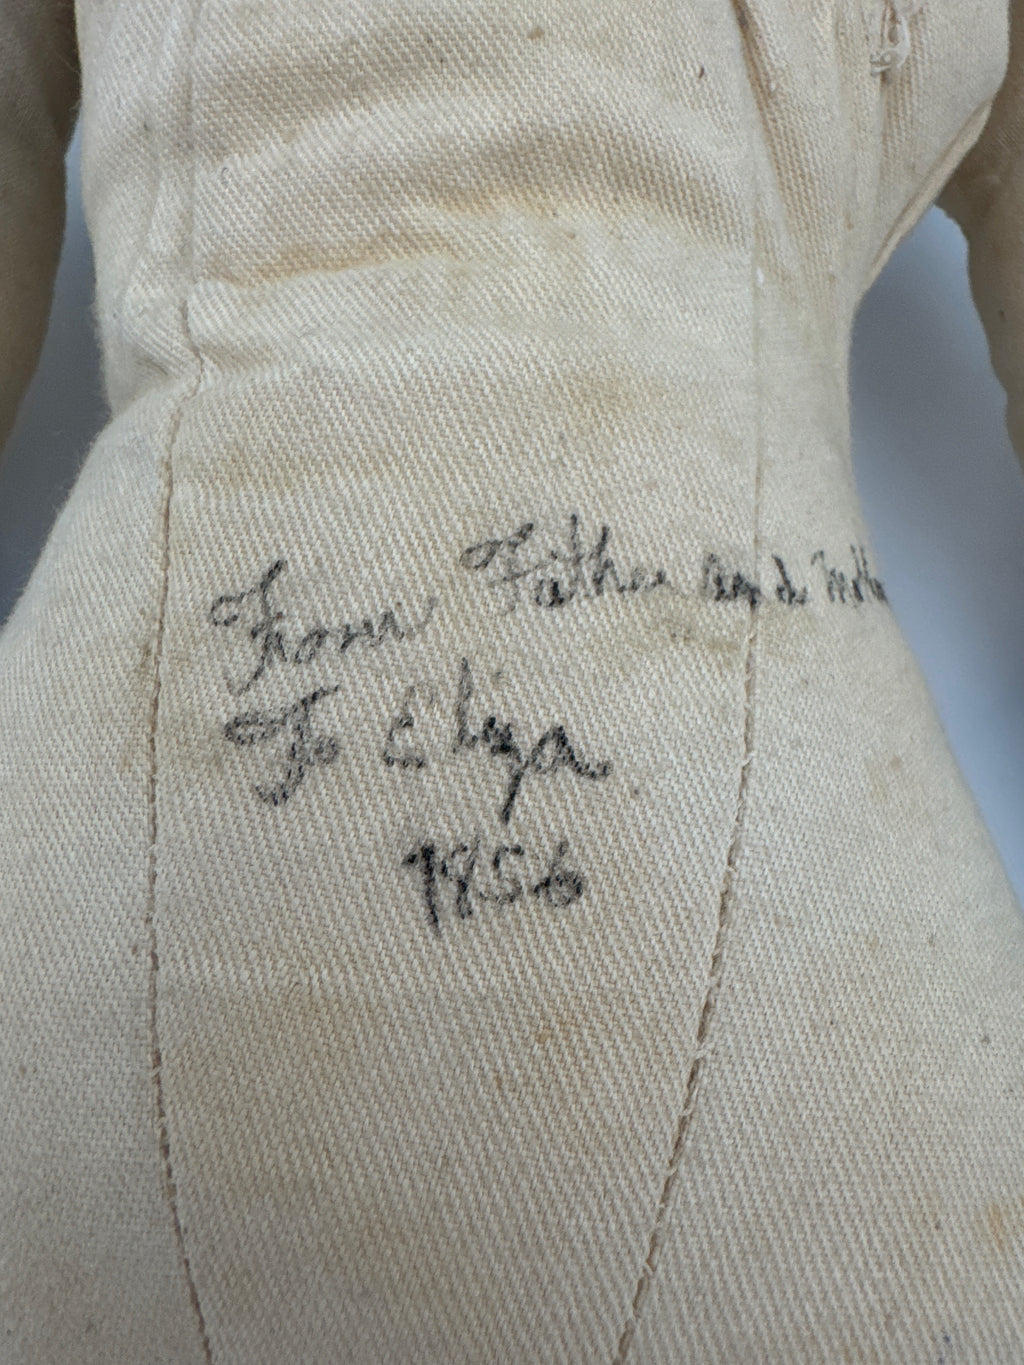 From Father and Mothe
To Eliza
1856